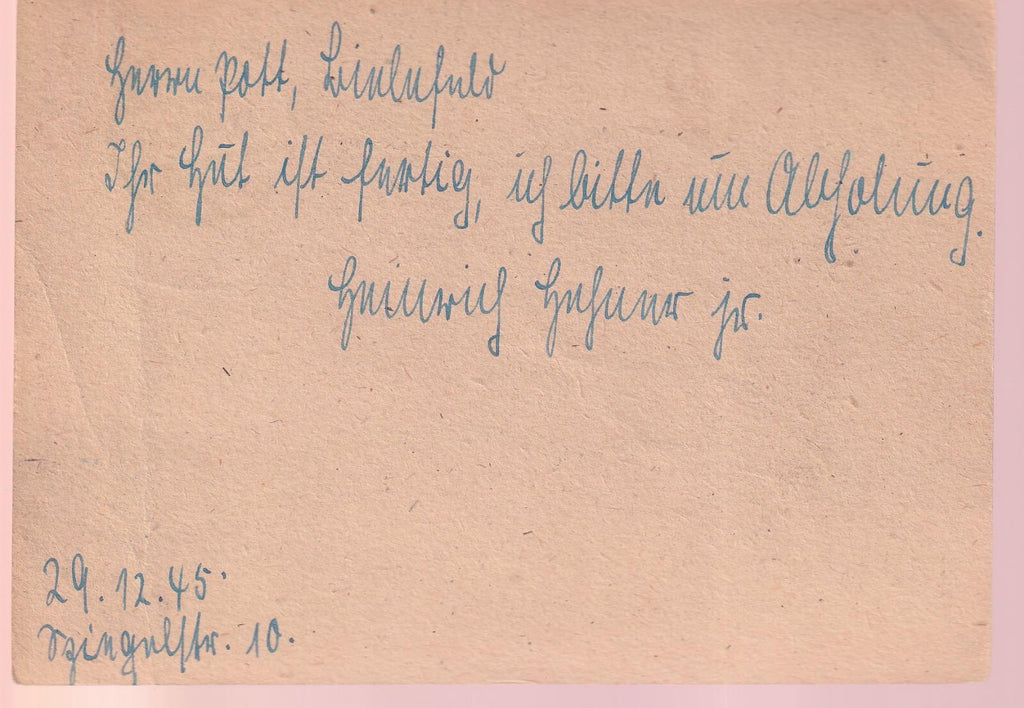 Herrn Pott, Bielefeld
Ihr Hut ist fertig, ich bitte um Abholung.
Heinrich Hehner jr.
29.12.45.
Spiegelstr. 10.